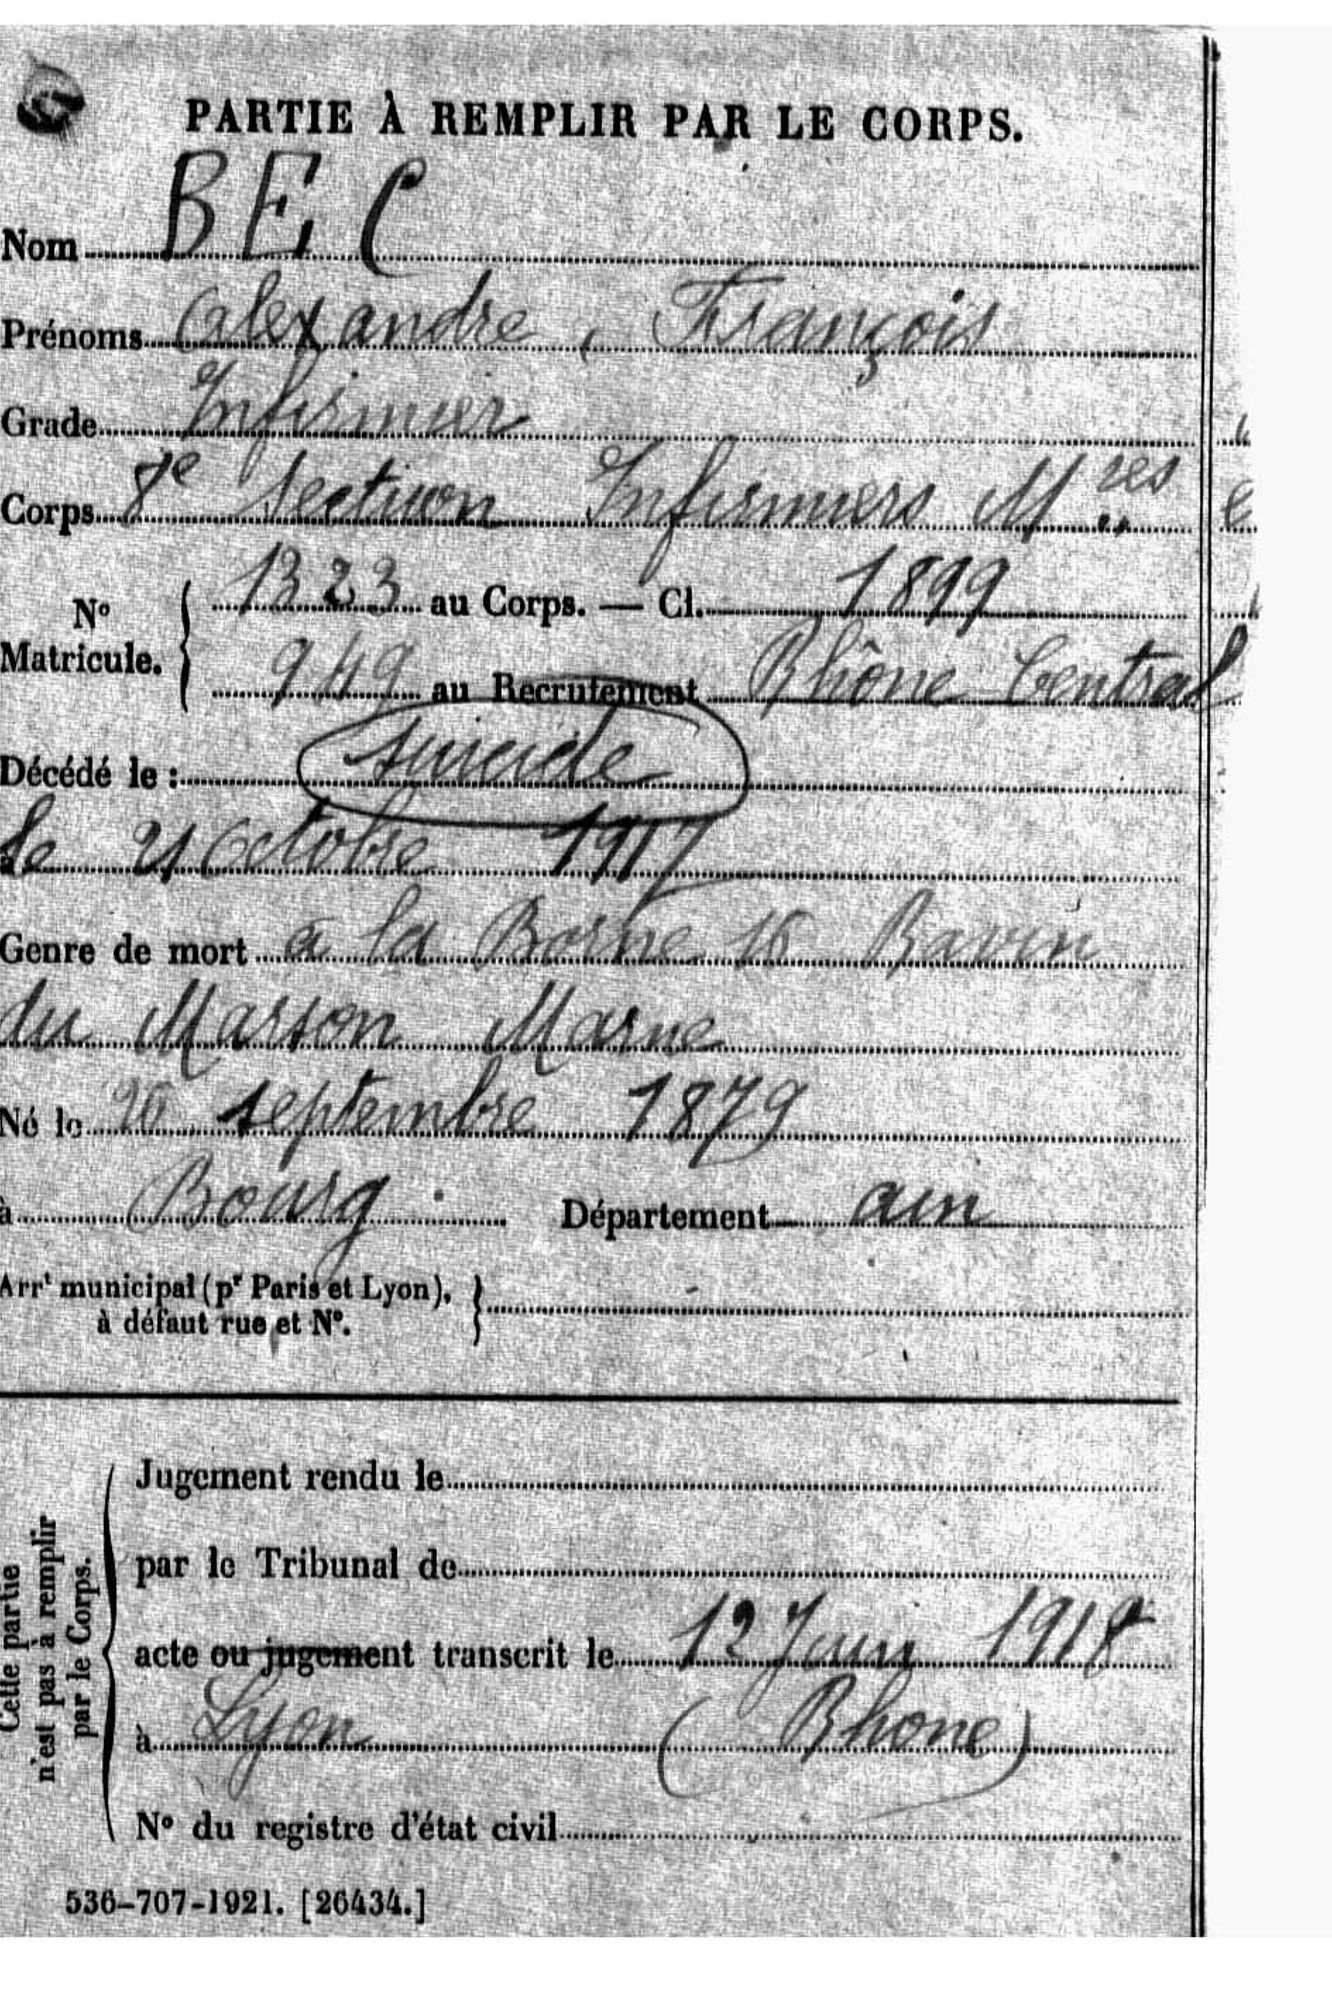 PARTIE À REMPLIR PAR LE CORPS.
Nom BEC
Prénoms Alexandre, François
Grade Infirmier
Corps 8e Section Infirmiers Mres
No Matricule. { 1323 au Corps. — Cl. 1899
949 au Recrutement Rhône Central
Décédé le : suicide
le 21 octobre 1917
Genre de mort à la Borne 16 Ravin
du Marson Marne
Né le 26 septembre 1879
à Bourg Département ain
Arrt municipal (pr Paris et Lyon),
à défaut rue et No. }
Cette partie
n'est pas à remplir
par le Corps.
Jugement rendu le
par le Tribunal de
acte ou jugement transcrit le 12 Juin 1918
à Lyon (Rhone)
No du registre d'état civil
536-707-1921. [26434.]